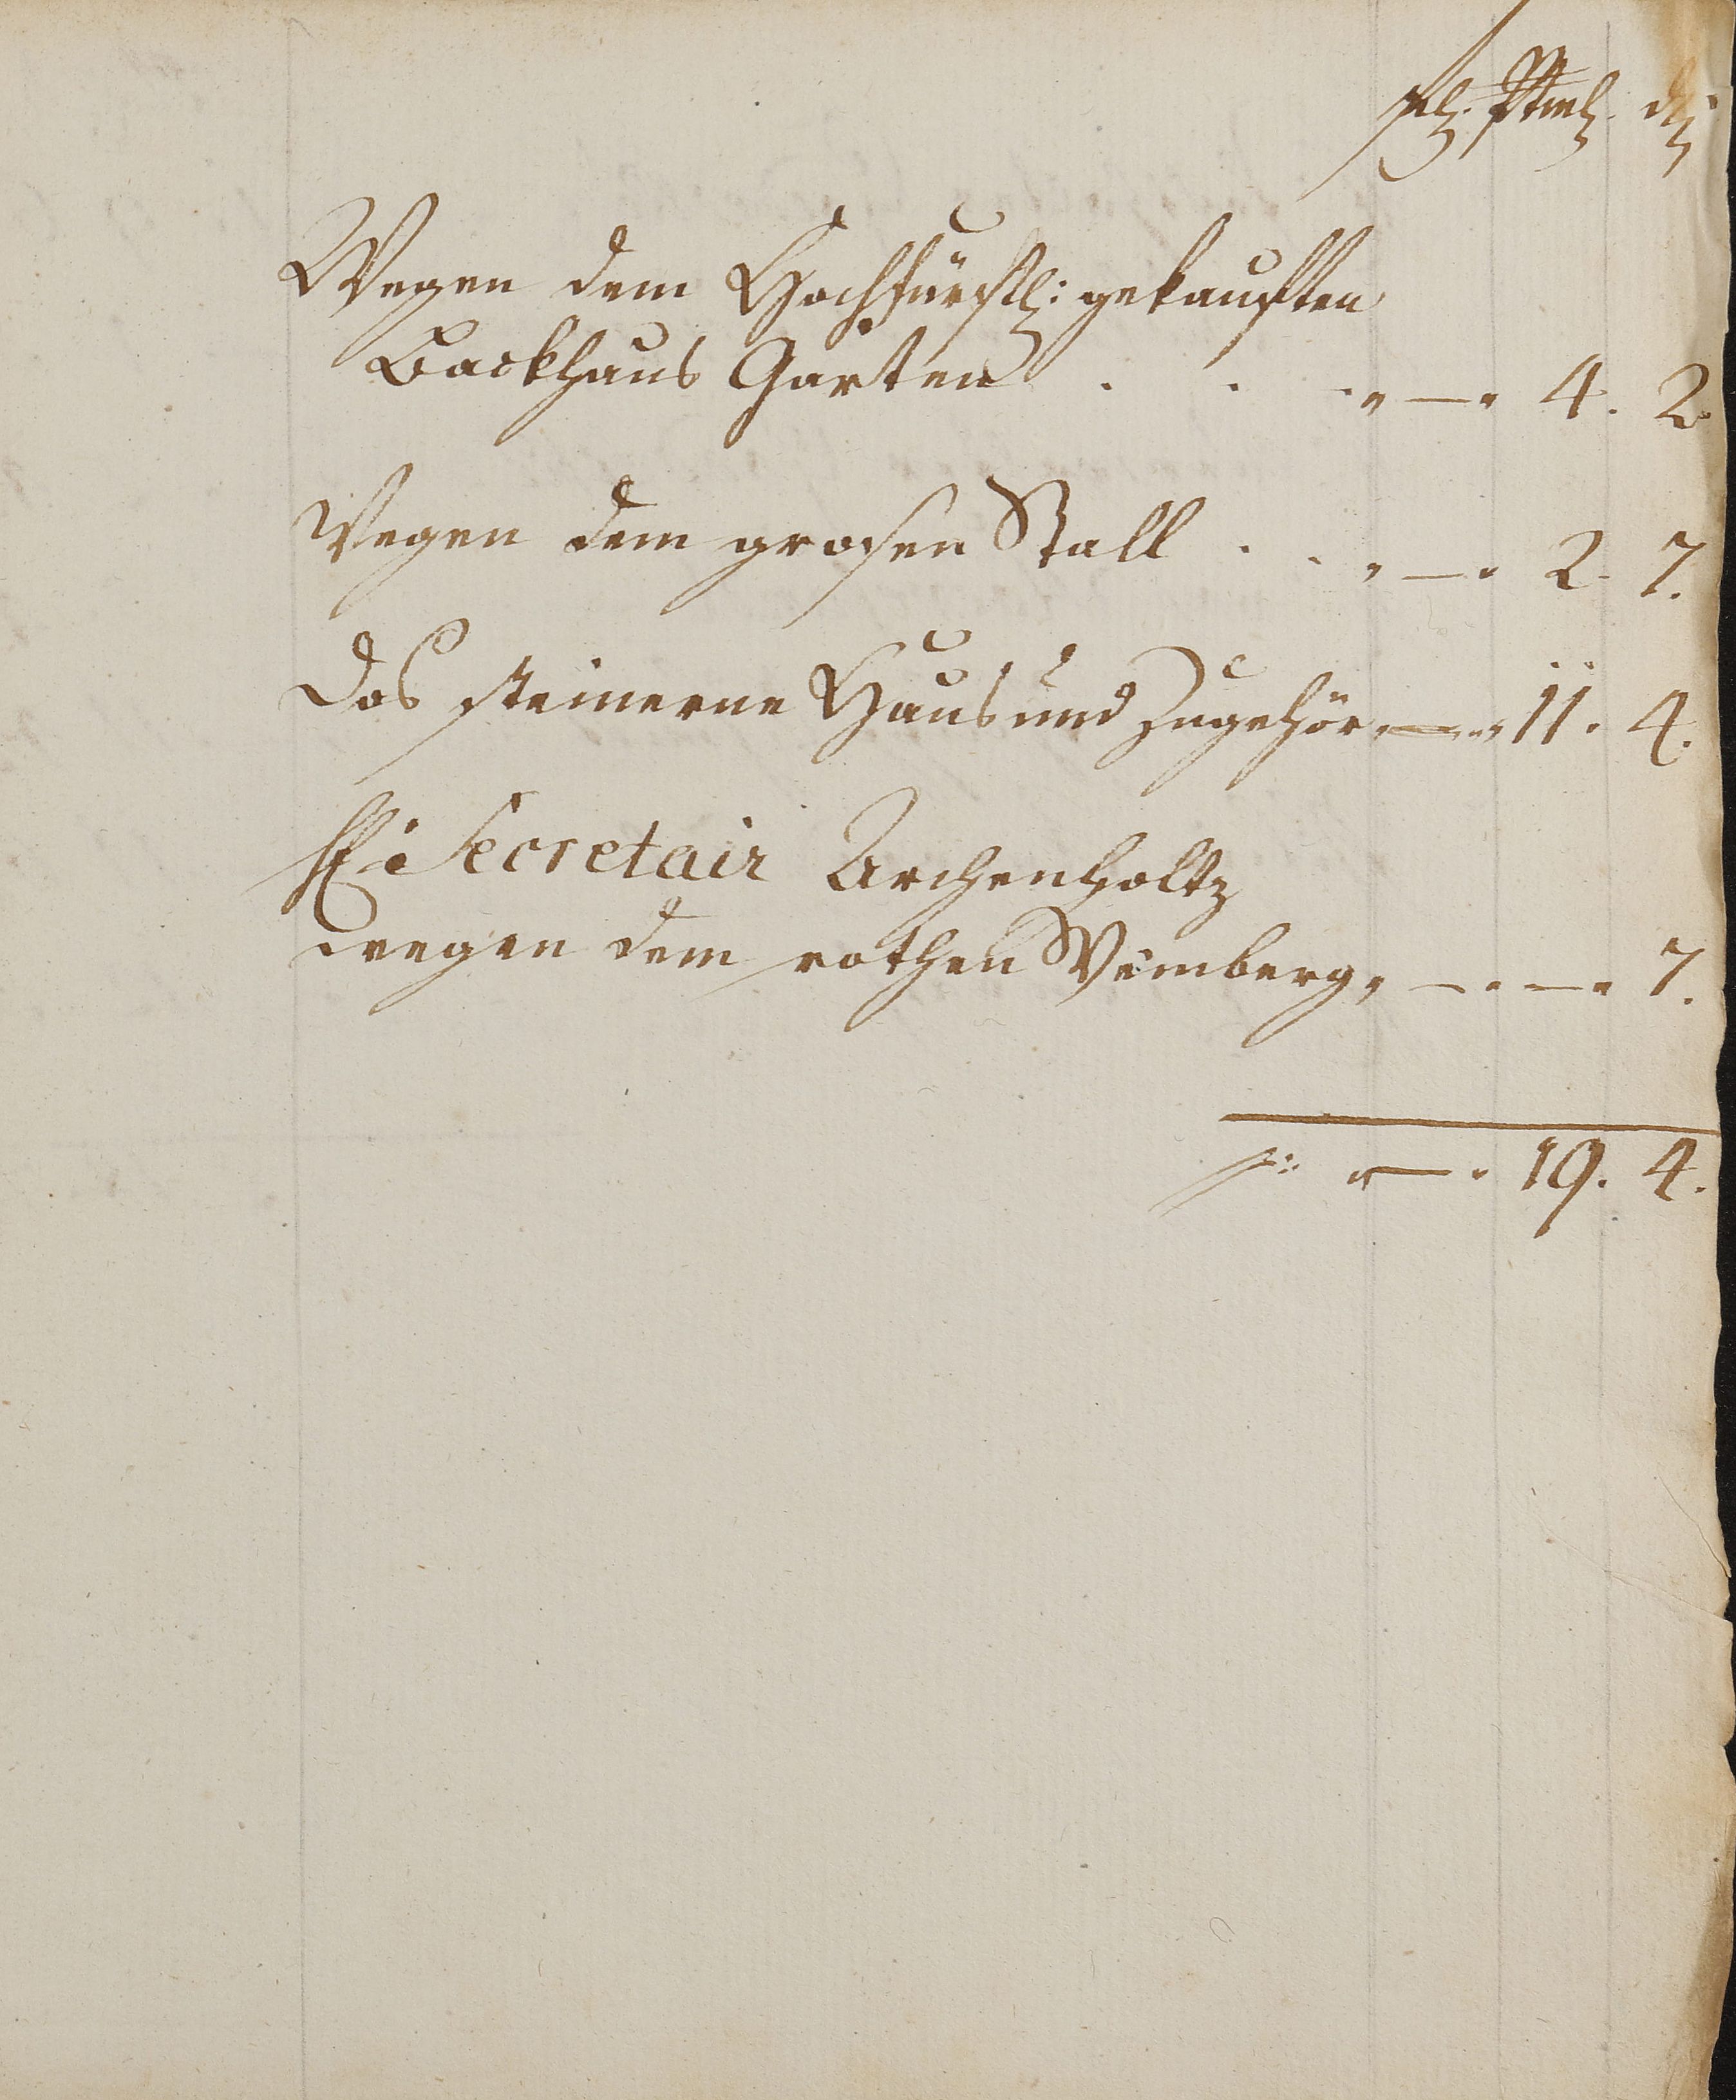 Wegen dem Hochfürstl: gekauften
Backhaus Garten . . . „ — „ 4. 2.
Wegen dem grosen Stall . . „ — „ 2. 7.
das steinerne Haus und Zugehör „ — „ 11. 4.
H. Secretair Archenholtz
wegen dem rothen Weinberg „ — „ — „ 7.
„ — „ 19. 4.